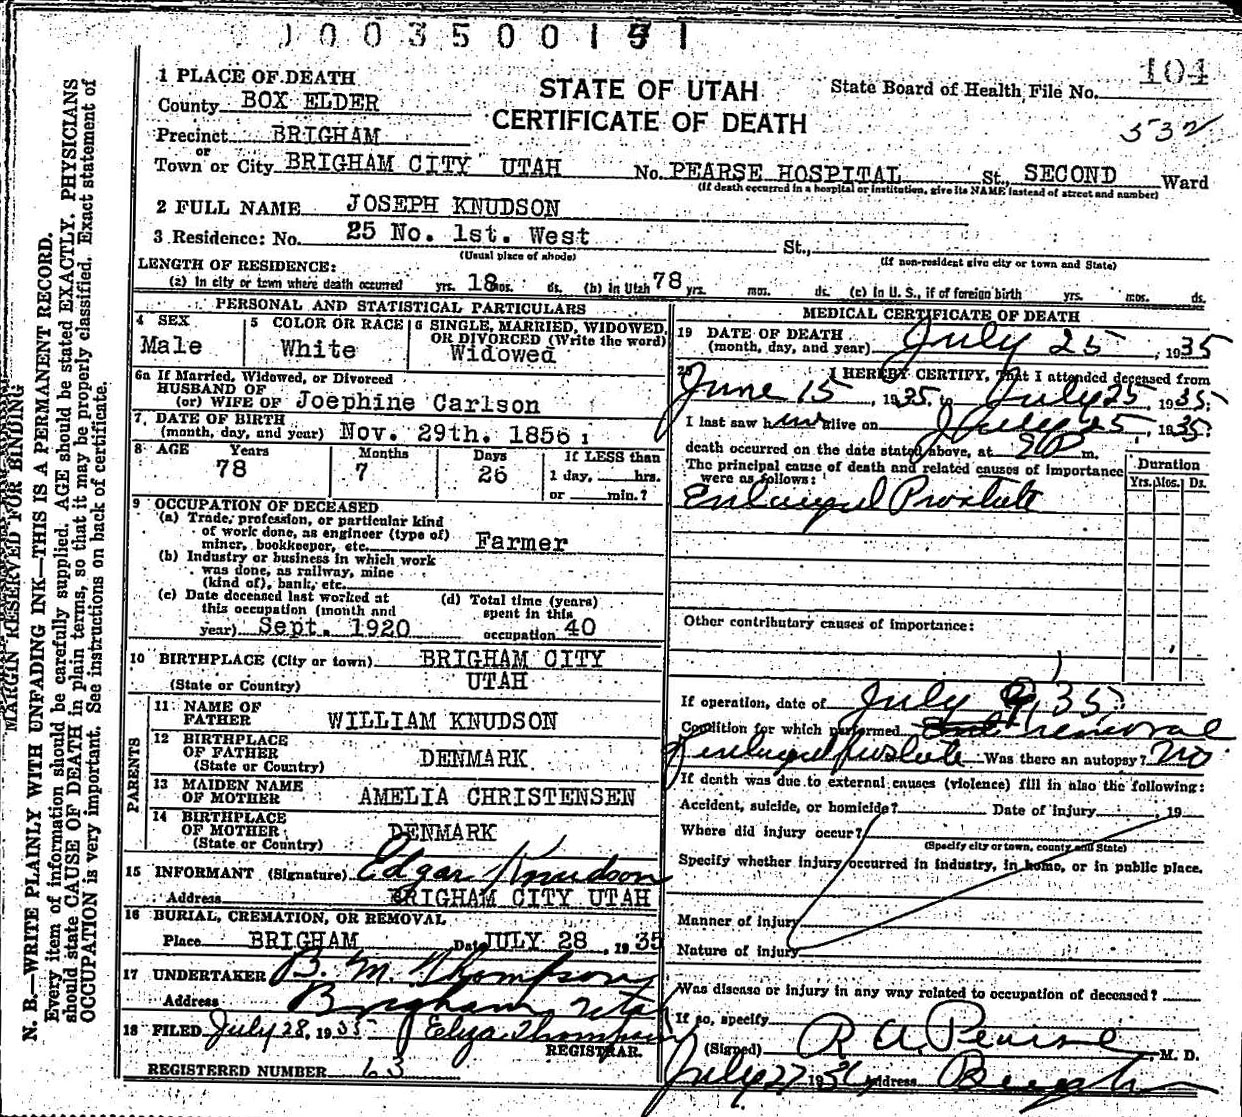 0003500171
104
532
1 PLACE OF DEATH
STATE OF UTAH
CERTIFICATE OF DEATH
State Board of Health File No.
County BOX ELDER
Precinct BRIGHAM
or
Town or City BRIGHAM CITY UTAH No. PEARSE HOSPITAL St., SECOND Ward
(If death occurred in a hospital or institution, give its NAME instead of street and number)
2 FULL NAME JOSEPH KNUDSON
3 Residence: No. 25 No. 1st. West St.,
(Usual place of abode) (If non-resident give city or town and State)
LENGTH OF RESIDENCE:
(a) In city or town where death occurred yrs. 18 mos. ds. (b) in Utah 78 yrs. mos. ds. (c) in U. S., if of foreign birth yrs. mos. ds.
PERSONAL AND STATISTICAL PARTICULARS
4 SEX
Male
5 COLOR OR RACE
White
6 SINGLE, MARRIED, WIDOWED, OR DIVORCED (Write the word)
Widowed
6a If Married, Widowed, or Divorced
HUSBAND OF
(or) WIFE OF Joephine Carlson
7. DATE OF BIRTH
(month, day, and year) Nov. 29th. 1856
8 AGE Years Months Days If LESS than
78 7 26 1 day, hrs.
or min.?
9 OCCUPATION OF DECEASED
(a) Trade, profession, or particular kind
of work done, as engineer (type of)
miner, bookkeeper, etc. Farmer
(b) Industry or business in which work
was done, as railway, mine
(kind of), bank, etc.
(c) Date deceased last worked at
this occupation (month and
year) Sept. 1920
(d) Total time (years)
spent in this
occupation 40
10 BIRTHPLACE (City or town) BRIGHAM CITY
(State or Country) UTAH
PARENTS
11 NAME OF
FATHER WILLIAM KNUDSON
12 BIRTHPLACE
OF FATHER DENMARK
(State or Country)
13 MAIDEN NAME
OF MOTHER AMELIA CHRISTENSEN
14 BIRTHPLACE
OF MOTHER DENMARK
(State or Country)
15 INFORMANT (Signature) Edgar Knudson
Address BRIGHAM CITY UTAH
16 BURIAL, CREMATION, OR REMOVAL
Place BRIGHAM Date JULY 28, 1935
17 UNDERTAKER B. M. Thompson
Address Brigham Utah
18 FILED July 28, 1935 Eliza Thompson
REGISTRAR.
REGISTERED NUMBER 63
MEDICAL CERTIFICATE OF DEATH
19 DATE OF DEATH
(month, day, and year) July 25, 1935
20 I HEREBY CERTIFY, That I attended deceased from
June 15, 1935, to July 25 1935;
I last saw him alive on July 25, 1935;
death occurred on the date stated above, at m.
The principal cause of death and related causes of importance
were as follows:
Duration
Yrs. Mos. Ds.
Enlarged Prostate
Other contributory causes of importance:
If operation, date of July 9, 35
Condition for which performed removal
enlarged prostate Was there an autopsy? no
If death was due to external causes (violence) fill in also the following:
Accident, suicide, or homicide? Date of injury 19
Where did injury occur?
(Specify city or town, county and State)
Specify whether injury occurred in industry, in home, or in public place.
Manner of injury
Nature of injury
Was disease or injury in any way related to occupation of deceased?
If so, specify
(Signed) R A Pearse M. D.
July 27 19 Address Brigham
MARGIN RESERVED FOR BINDING
N. B.—WRITE PLAINLY WITH UNFADING INK—THIS IS A PERMANENT RECORD.
Every item of information should be carefully supplied. AGE should be stated EXACTLY. PHYSICIANS
should state CAUSE OF DEATH in plain terms, so that it may be properly classified. Exact statement of
OCCUPATION is very important. See instructions on back of certificate.